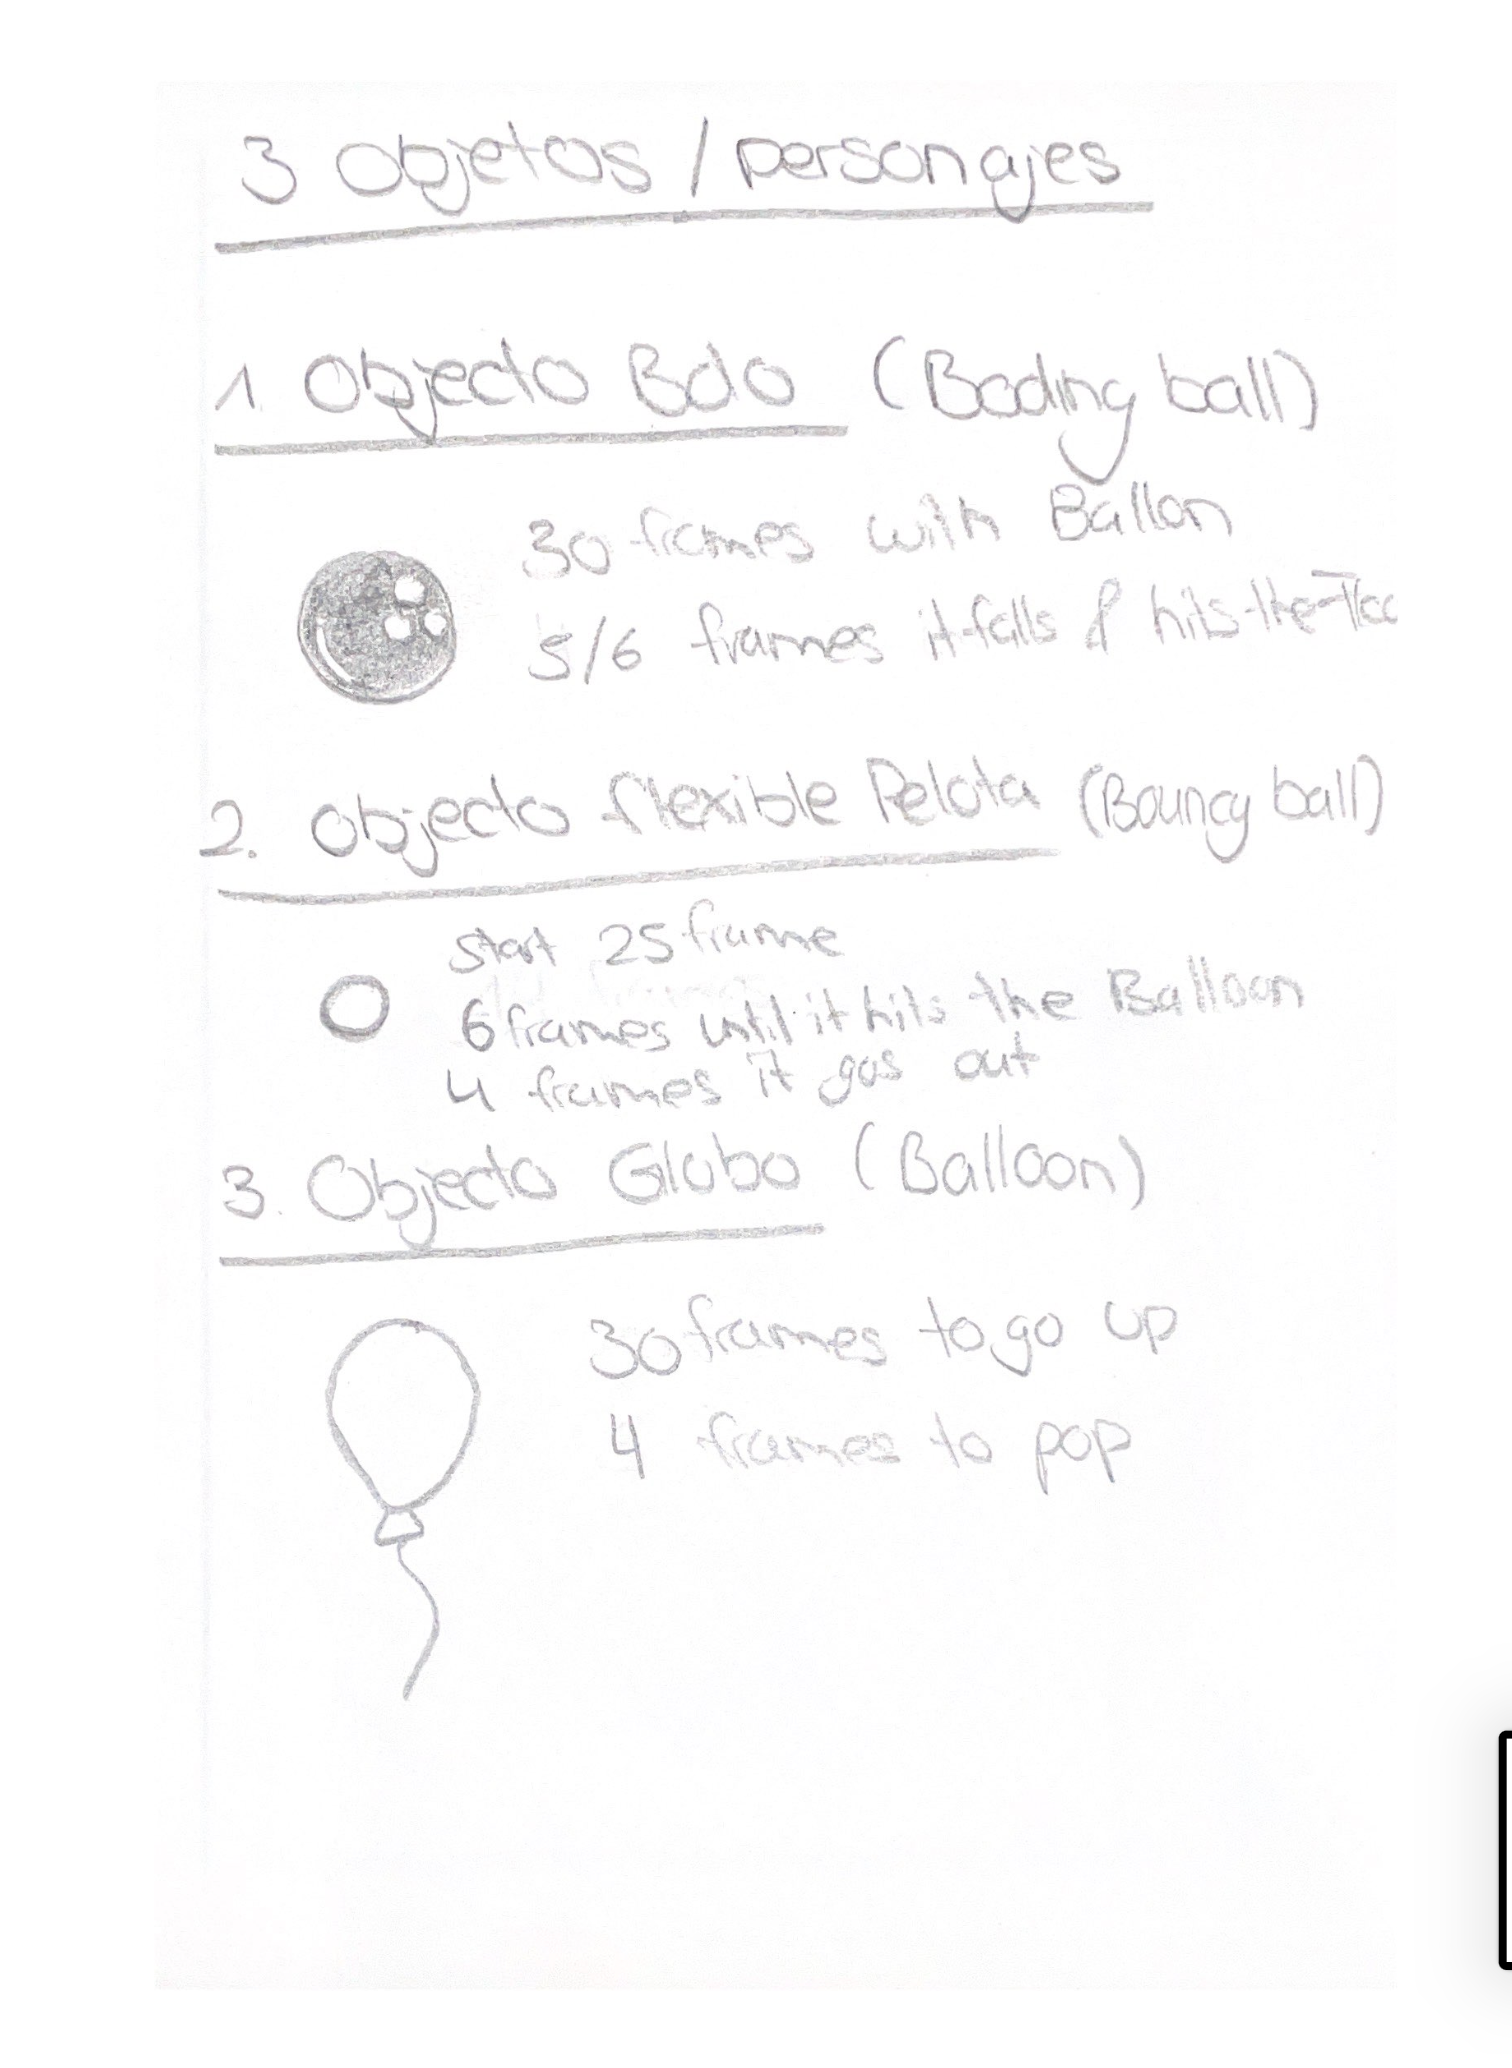 3 Objetos / personajes
1. Objecto Bolo (Bowling ball)
30 frames with Ballon
5/6 frames it falls & hits the
2. Objecto flexible Pelota (Bouncy ball)
Start 25 frame
6 frames until it hits the Balloon
4 frames it gos out
3. Objecto Globo (Balloon)
30 frames to go up
4 frames to pop